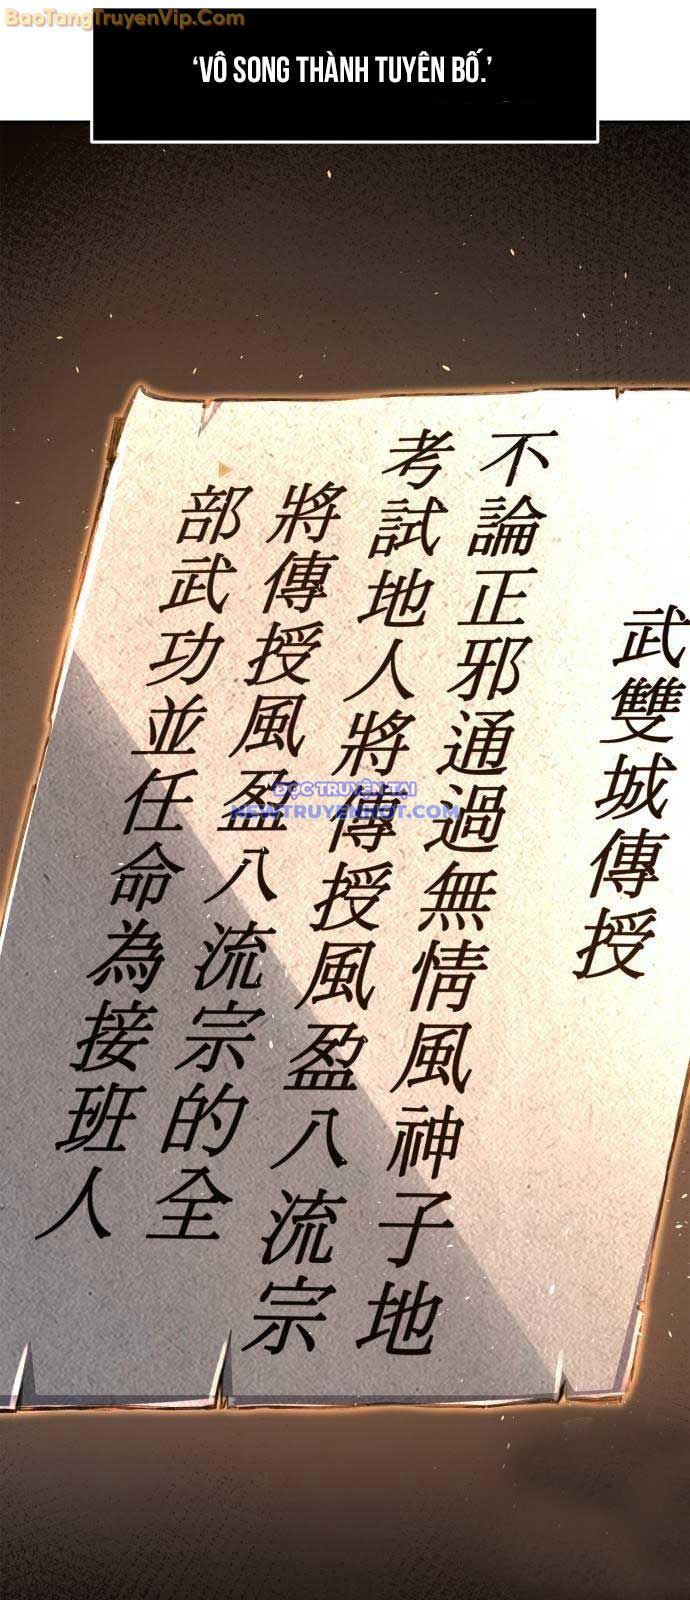 BaoTangTruyenVip.Com
‘VÔ SONG THÀNH TUYÊN BỐ.’
武雙城傳授
不論正邪通過無情風神子地
考試地人將傳授風盈八流宗
將傳授風盈八流宗的全
部武功並任命為接班人
ĐỌC TRUYỆN TẠI
NEWTRUYENHOT.COM